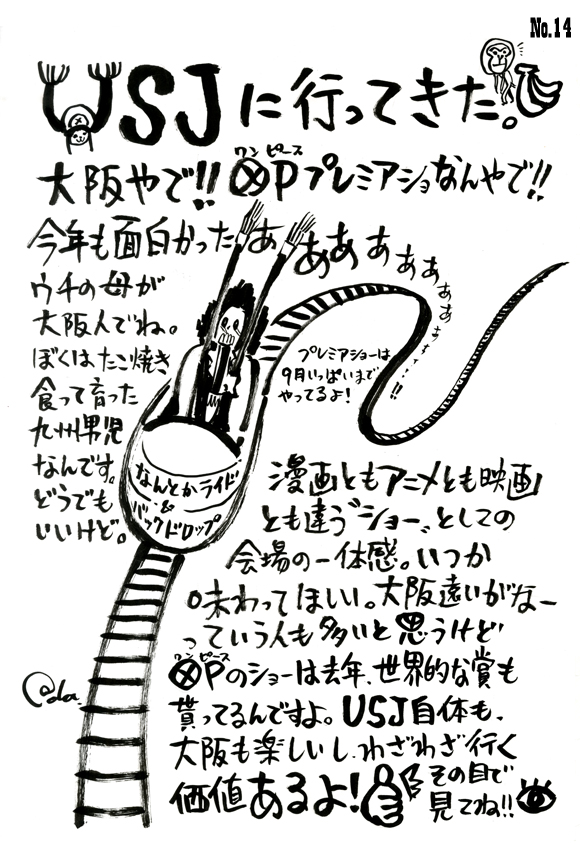 No.14
USJに行ってきた。
大阪やで!! ワンピース ⓍPプレミアショなんやで!!
今年も面白かったぁあああぁぁぁぁ・・・!!
ウチの母が
大阪人でね。
ぼくはたこ焼き
食って育った
九州男児
なんです。
どうでも
いいけど。
プレミアショーは
9月いっぱいまで
やってるよ!
なんとかライド
&
バックドロップ
漫画ともアニメとも映画
とも違う"ショー"としての
会場の一体感。いつか
味わってほしい。大阪遠いがなー
っていう人も多いと思うけど
ワンピース ⓍPのショーは去年、世界的な賞も
貰ってるんですよ。USJ自体も、
大阪も楽しいし、わざわざ行く
価値あるよ!
その目で
見てね!!